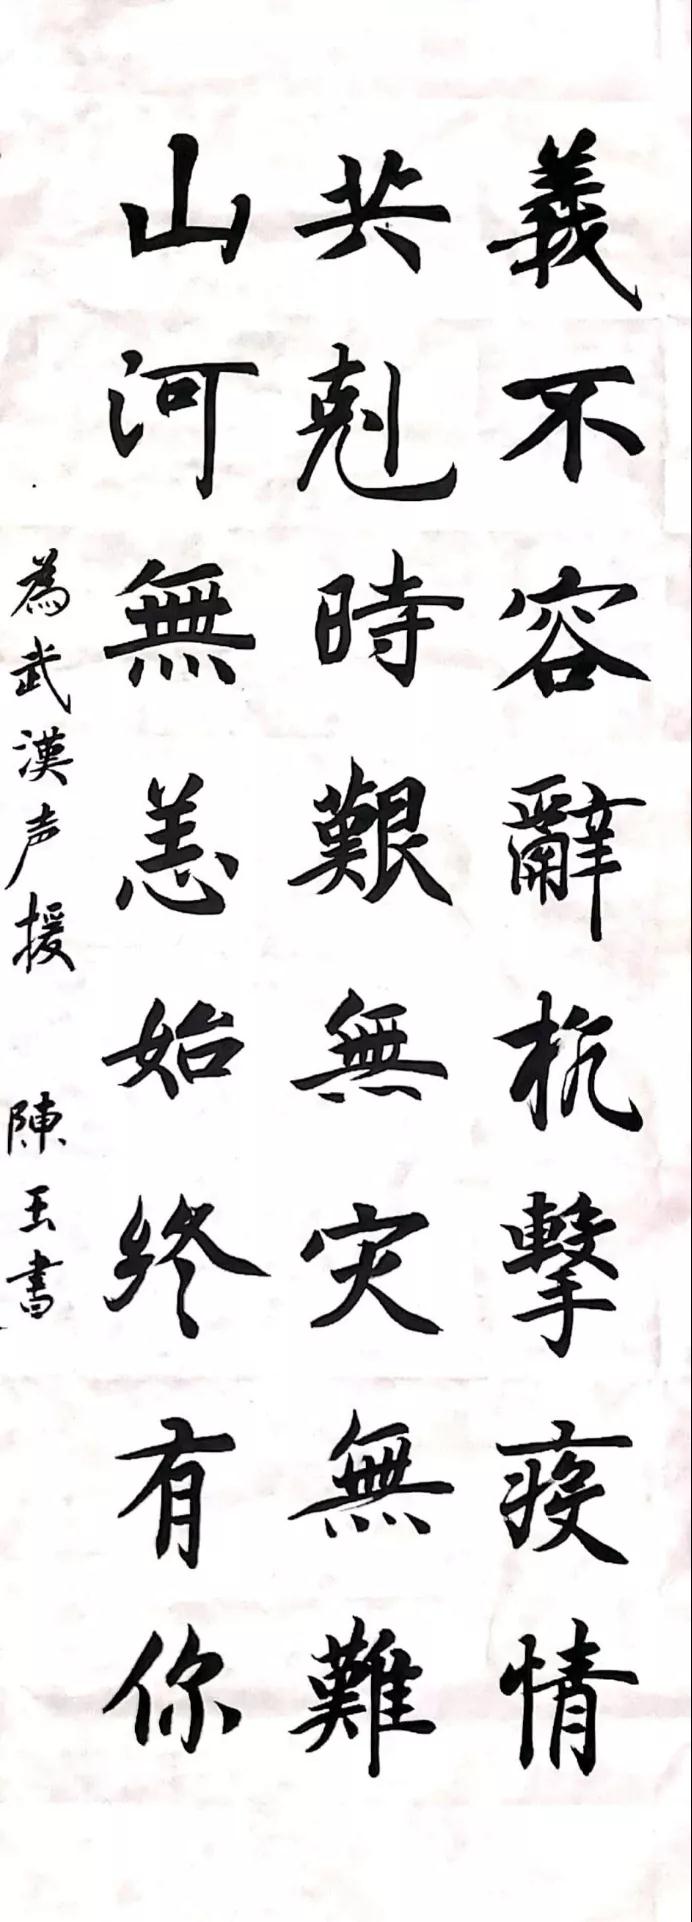 義不容辭抗擊疫情
共剋時艱無灾無難
山河無恙始終有你
為武漢声援 陳玉書